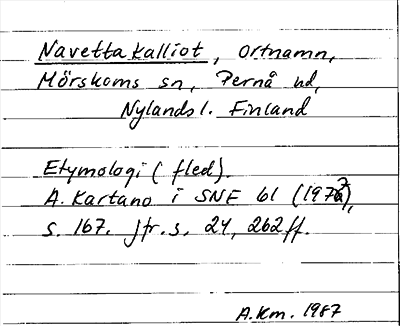 Navettakalliot, ortnamn,
Mörskoms sn, Pernå hd,
Nylands l. Finland
Etymologi (fled).
A. Kartano i SNF 61 (1973),
s. 167. Jfr. s. 24, 262 ff.
A.Km. 1987